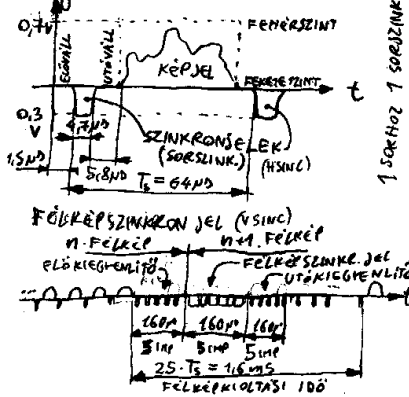 U
0,7V
FEHÉRSZINT
ELŐVÁLL
UTÓVÁLL
KÉPJEL
FEKETESZINT
t
0,3
V
4,7µs
SZINKRONJELEK
(SORSZINK.)
(HSINC)
1,5µs
5,8µs
Ts = 64µs
1 SORHOZ 1 SORSZINK
FÉLKÉPSZINKRON JEL (VSINC)
n. FÉLKÉP
n+1. FÉLKÉP
ELŐKIEGYENLÍTŐ
FÉLKÉPSZINKR. JEL
UTÓKIEGYENLÍTŐ
t
160µ
160µ
160µ
5 IMP
5 IMP
5 IMP
25·Ts = 1,6ms
FÉLKÉPKIOLTÁSI IDŐ